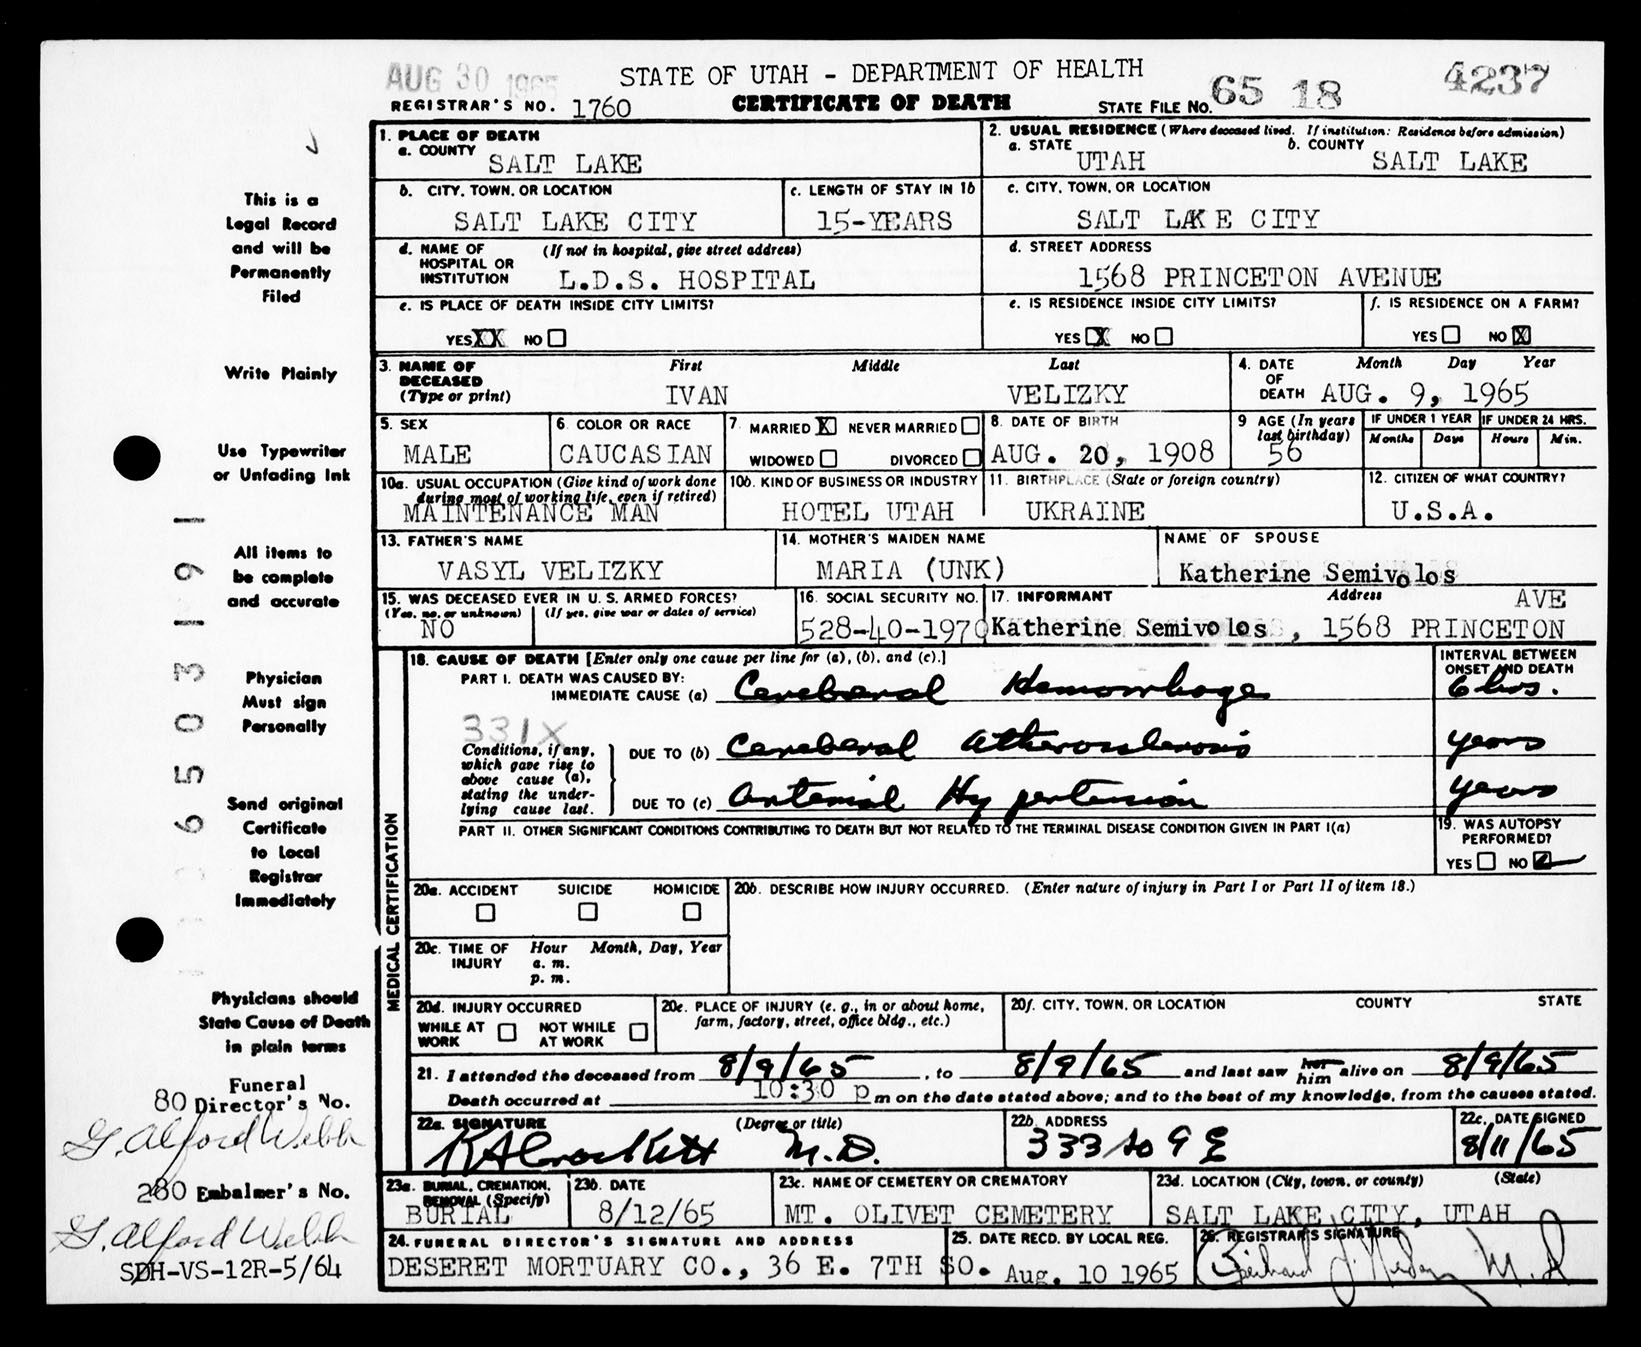 AUG 30 1965
STATE OF UTAH - DEPARTMENT OF HEALTH
REGISTRAR'S NO. 1760 CERTIFICATE OF DEATH STATE FILE NO. 65 18 4237
1. PLACE OF DEATH
a. COUNTY SALT LAKE
2. USUAL RESIDENCE (Where deceased lived. If institution: Residence before admission)
a. STATE UTAH b. COUNTY SALT LAKE
b. CITY, TOWN, OR LOCATION SALT LAKE CITY
c. LENGTH OF STAY IN 1b 15-YEARS
c. CITY, TOWN, OR LOCATION SALT LAKE CITY
d. NAME OF HOSPITAL OR INSTITUTION (If not in hospital, give street address) L.D.S. HOSPITAL
d. STREET ADDRESS 1568 PRINCETON AVENUE
e. IS PLACE OF DEATH INSIDE CITY LIMITS?
YES XX NO
e. IS RESIDENCE INSIDE CITY LIMITS?
YES X NO
f. IS RESIDENCE ON A FARM?
YES NO X
3. NAME OF DECEASED (Type or print) First Middle Last
IVAN VELIZKY
4. DATE OF DEATH Month Day Year
AUG. 9, 1965
5. SEX MALE
6. COLOR OR RACE CAUCASIAN
7. MARRIED X NEVER MARRIED
WIDOWED DIVORCED
8. DATE OF BIRTH AUG. 20, 1908
9 AGE (In years last birthday) 56
IF UNDER 1 YEAR Months Days
IF UNDER 24 HRS. Hours Min.
10a. USUAL OCCUPATION (Give kind of work done during most of working life, even if retired)
MAINTENANCE MAN
10b. KIND OF BUSINESS OR INDUSTRY HOTEL UTAH
11. BIRTHPLACE (State or foreign country) UKRAINE
12. CITIZEN OF WHAT COUNTRY? U.S.A.
13. FATHER'S NAME VASYL VELIZKY
14. MOTHER'S MAIDEN NAME MARIA (UNK)
NAME OF SPOUSE Katherine Semivolos
15. WAS DECEASED EVER IN U.S. ARMED FORCES?
(Yes, no, or unknown) (If yes, give war or dates of service)
NO
16. SOCIAL SECURITY NO. 528-40-1970
17. INFORMANT Address AVE
Katherine Semivolos, 1568 PRINCETON
MEDICAL CERTIFICATION
18. CAUSE OF DEATH [Enter only one cause per line for (a), (b), and (c).]
INTERVAL BETWEEN ONSET AND DEATH
PART I. DEATH WAS CAUSED BY:
IMMEDIATE CAUSE (a) Cerebral Hemorrhage 6 hrs.
331X
Conditions, if any, which gave rise to above cause (a), stating the underlying cause last.
DUE TO (b) Cerebral Atherosclerosis years
DUE TO (c) Arterial Hypertension years
PART II. OTHER SIGNIFICANT CONDITIONS CONTRIBUTING TO DEATH BUT NOT RELATED TO THE TERMINAL DISEASE CONDITION GIVEN IN PART I(a)
19. WAS AUTOPSY PERFORMED?
YES NO
20a. ACCIDENT SUICIDE HOMICIDE
20b. DESCRIBE HOW INJURY OCCURRED. (Enter nature of injury in Part I or Part II of item 18.)
20c. TIME OF INJURY Hour Month, Day, Year
a. m.
p. m.
20d. INJURY OCCURRED
WHILE AT WORK NOT WHILE AT WORK
20e. PLACE OF INJURY (e. g., in or about home, farm, factory, street, office bldg., etc.)
20f. CITY, TOWN, OR LOCATION COUNTY STATE
21. I attended the deceased from 8/9/65, to 8/9/65 and last saw her him alive on 8/9/65
Death occurred at 10:30 p m on the date stated above; and to the best of my knowledge, from the causes stated.
22a. SIGNATURE (Degree or title)
K A Crockett M.D.
22b. ADDRESS 333 So 9 E
22c. DATE SIGNED 8/11/65
23a. BURIAL, CREMATION, REMOVAL (Specify) BURIAL
23b. DATE 8/12/65
23c. NAME OF CEMETERY OR CREMATORY MT. OLIVET CEMETERY
23d. LOCATION (City, town, or county) (State) SALT LAKE CITY, UTAH
24. FUNERAL DIRECTOR'S SIGNATURE AND ADDRESS
DESERET MORTUARY CO., 36 E. 7TH SO.
25. DATE RECD. BY LOCAL REG. Aug. 10 1965
26. REGISTRAR'S SIGNATURE
M D
This is a
Legal Record
and will be
Permanently
Filed
Write Plainly
Use Typewriter
or Unfading Ink
All items to
be complete
and accurate
Physician
Must sign
Personally
Send original
Certificate
to Local
Registrar
Immediately
Physicians should
State Cause of Death
in plain terms
Funeral
80 Director's No.
G. Alford Webb
280 Embalmer's No.
G. Alford Webb
SDH-VS-12R-5/64